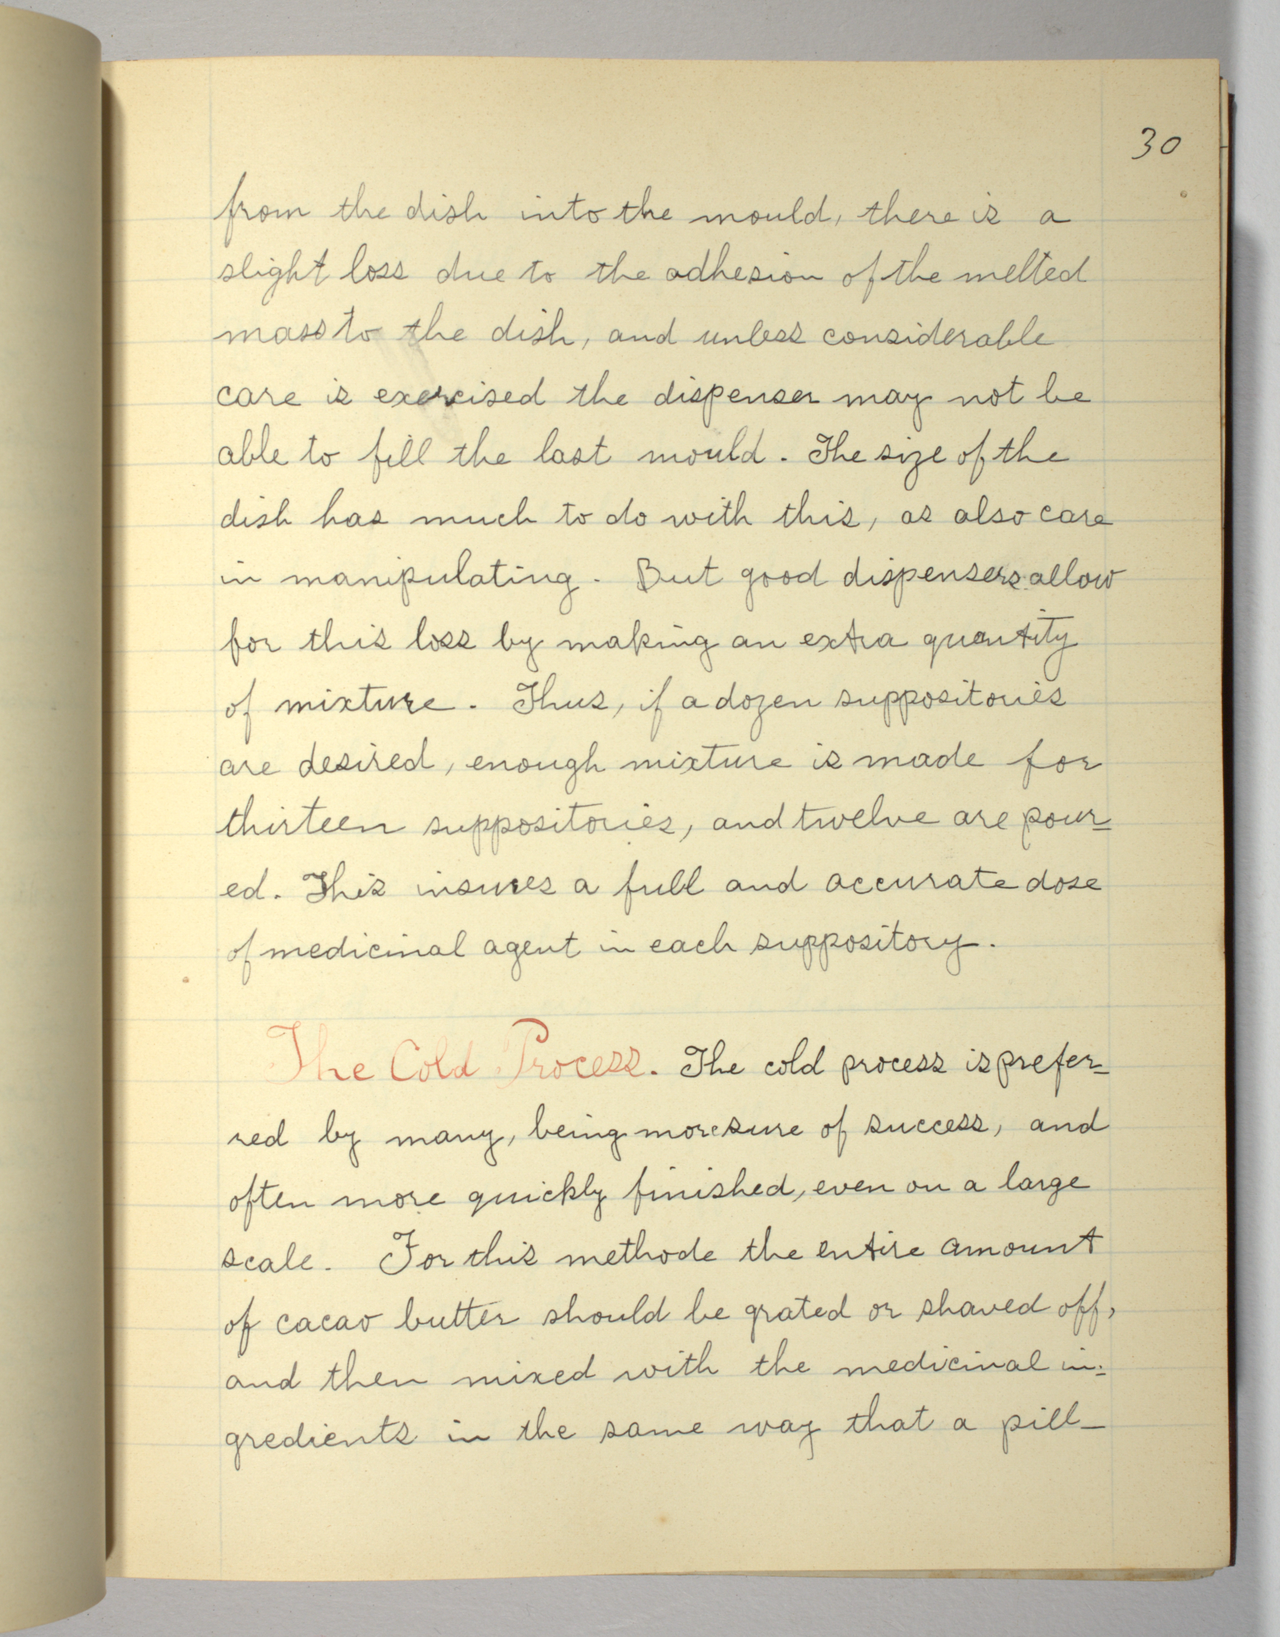 30
from the dish into the mould, there is a
slight loss due to the adhesion of the melted
mass to the dish, and unless considerable
care is exercised the dispenser may not be
able to fill the last mould. The size of the
dish has much to do with this, as also care
in manipulating. But good dispensers allow
for this loss by making an extra quantity
of mixture. Thus, if a dozen suppositories
are desired, enough mixture is made for
thirteen suppositories, and twelve are pour=
ed. This insures a full and accurate dose
of medicinal agent in each suppository.
The Cold Process. The cold process is prefer=
red by many, being more sure of success, and
often more quickly finished, even on a large
scale. For this methode the entire amount
of cacao butter should be grated or shaved off,
and then mixed with the medicinal in=
gredients in the same way that a pill-